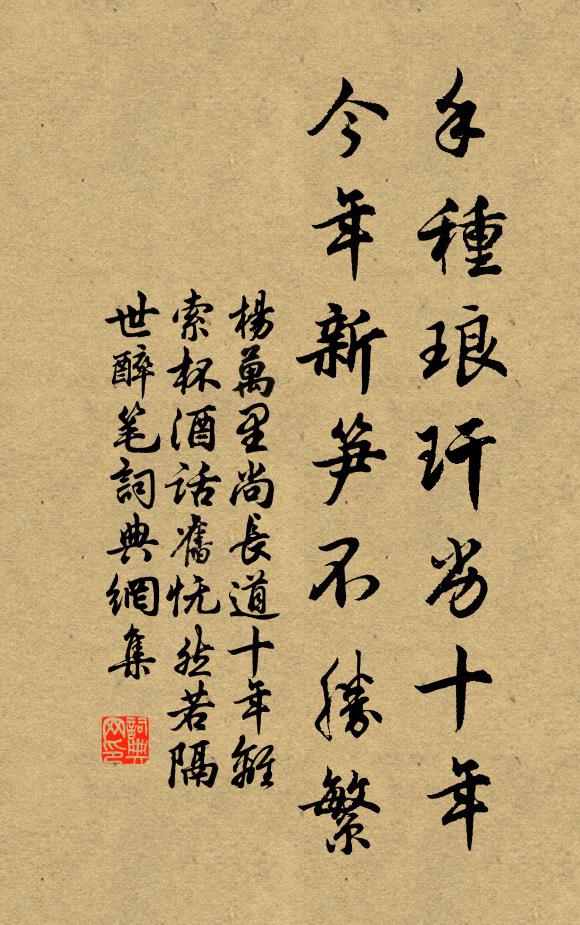 手種琅玕劣十年
今年新笋不勝繁
楊萬里尚長道十年離
索杯酒話舊怳然若隔
世醉笔詞典網集
詞典网印